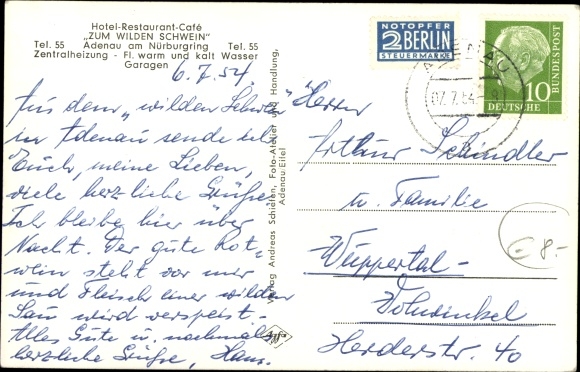 Hotel-Restaurant-Café
„ZUM WILDEN SCHWEIN"
Tel. 55 Adenau am Nürburgring Tel. 55
Zentralheizung - Fl. warm und kalt Wasser
Garagen
6.7.54.
Aus dem „wilden Schwein"
in Adenau sende ich
Euch, meine Lieben,
viele herzliche Grüße.
Ich bleibe hier über
Nacht. Der gute Rot-
wein steht vor mir
und Fleisch einer wilden
Sau wird verspeist.
Alles Gute u. nochmals
herzliche Grüße, Hans.
Verlag Andreas Schiefen, Foto-Atelier und Handlung,
Adenau/Eifel
Agfa
NOTOPFER
2 BERLIN
STEUERMARKE
ADENAU
07.7.54
10
DEUTSCHE
BUNDESPOST
Herrn
Arthur Schindler
u. Familie
Wuppertal-
Vohwinkel
Herderstr. 40
€ 8.-